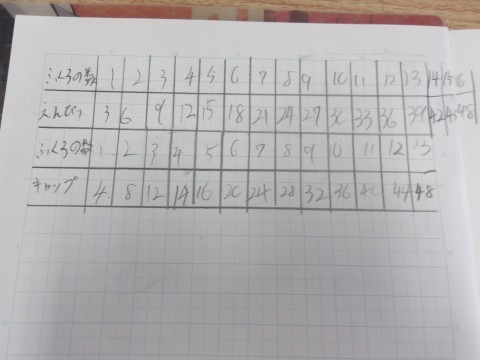 ふくろの数 1 2 3 4 5 6 7 8 9 10 11 12 13 14 15 16
えんぴつ 3 6 9 12 15 18 21 24 27 30 33 36 39 42 45 48
ふくろの数 1 2 3 4 5 6 7 8 9 10 11 12 13
キャップ 4 8 12 14 16 20 24 28 32 36 40 44 48